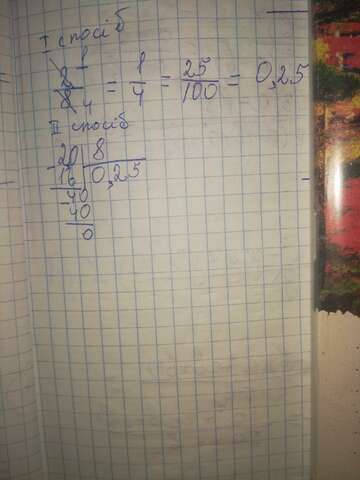 I спосіб
2 1
8 4 = 1/4 = 25/100 = 0,25
II спосіб
20 8
16 0,25
40
40
0